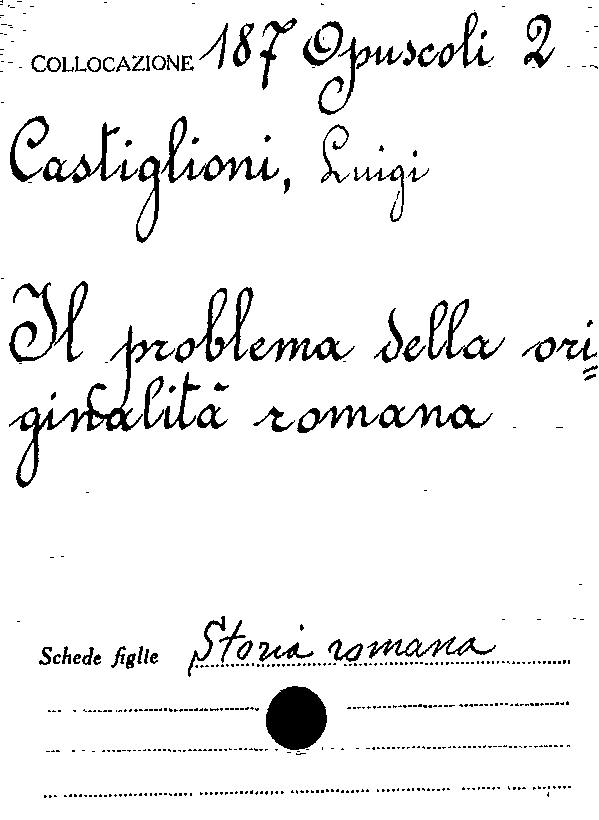 COLLOCAZIONE 187 Opuscoli 2
Castiglioni, Luigi
Il problema della ori=
ginalità romana
Schede figlie Storia romana